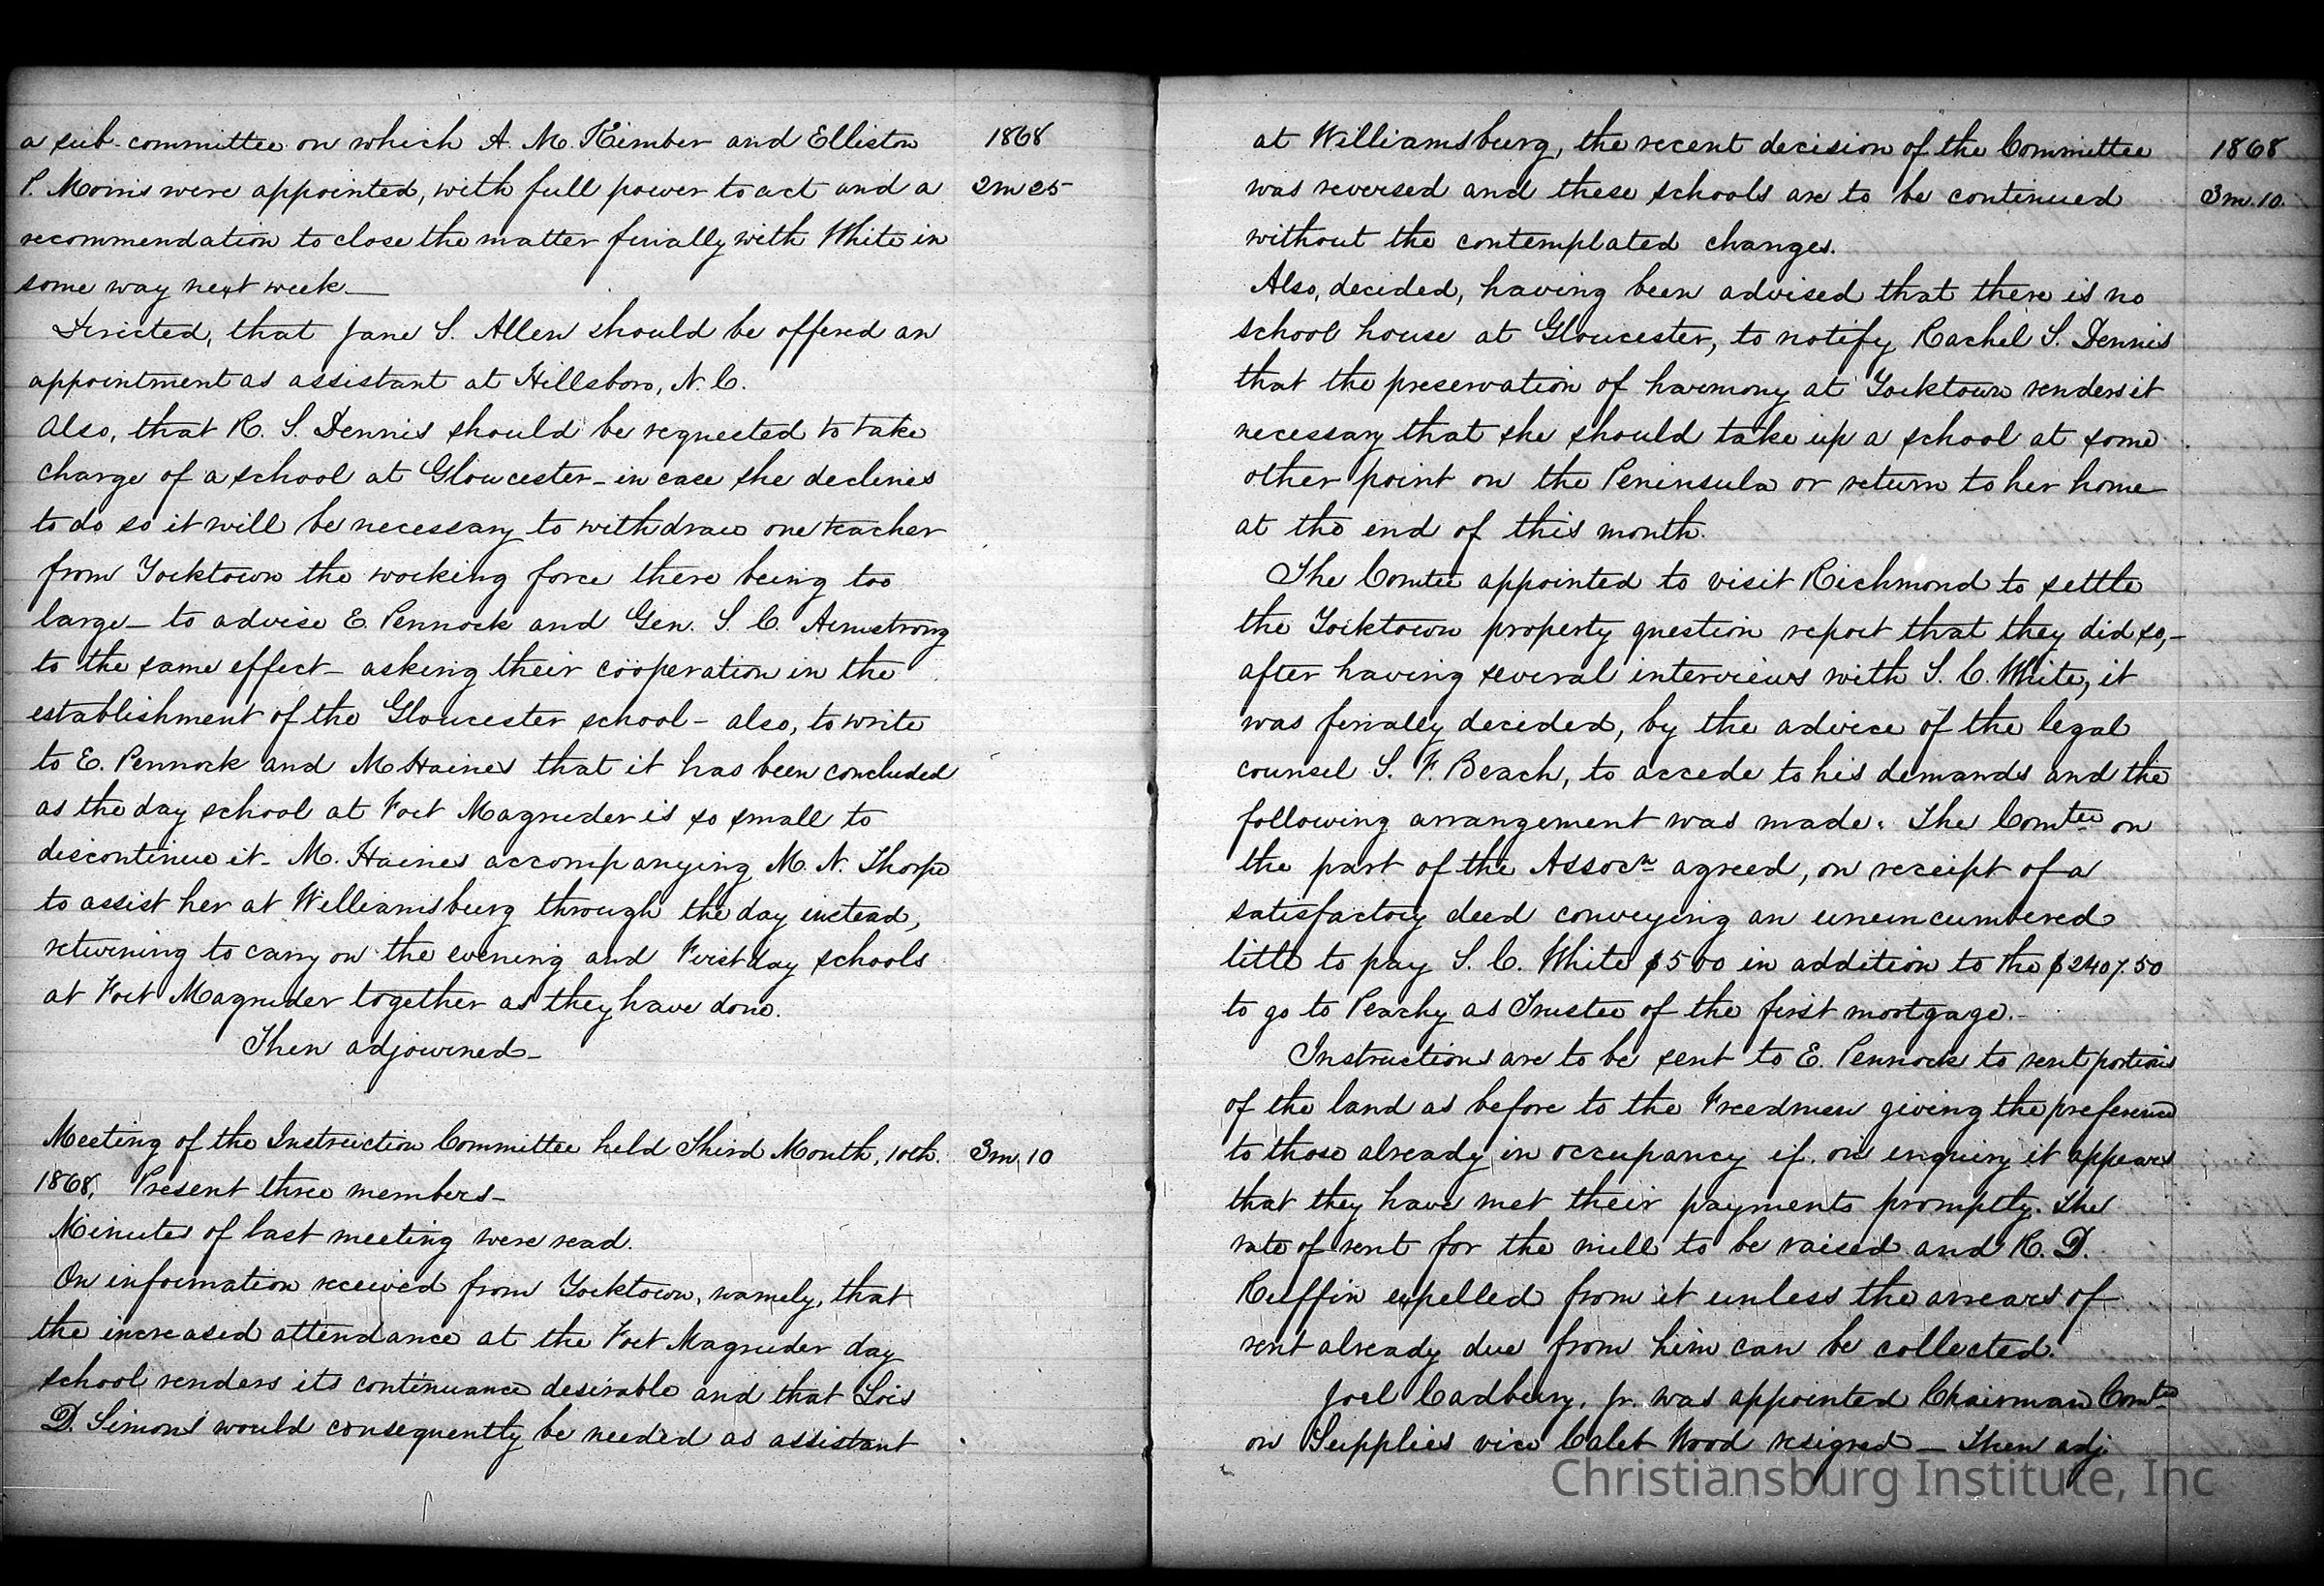 a sub-committee on which A. M. Kimber and Elliston
1868
P. Morris were appointed, with full power to act and a
2m 25
recommendation to close the matter finally with White in
some way next week—
Directed, that Jane S. Allen should be offered an
appointment as assistant at Hillsboro, N. C.
Also, that R. S. Dennis should be requested to take
charge of a school at Gloucester—in case she declines
to do so it will be necessary to withdraw one teacher
from Yorktown the working force there being too
large— to advise E. Pennock and Gen. S. C. Armstrong
to the same effect— asking their coöperation in the
establishment of the Gloucester school— also, to write
to E. Pennock and M Haines that it has been concluded
as the day school at Fort Magruder is so small to
discontinue it— M. Haines accompanying M. N. Thorpe
to assist her at Williamsburg through the day instead,
returning to carry on the evening and First day schools
at Fort Magruder together as they have done.
Then adjourned—
Meeting of the Instruction Committee held Third Month, 10th.
3m, 10
1868. Present three members—
Minutes of last meeting were read.
On information received from Yorktown, namely, that
the increased attendance at the Fort Magruder day
school renders its continuance desirable and that Lois
D. Simons would consequently be needed as assistant
at Williamsburg, the recent decision of the Committee
1868
was reversed and these schools are to be continued
3m. 10.
without the contemplated changes.
Also, decided, having been advised that there is no
school house at Gloucester, to notify Rachel S. Dennis
that the preservation of harmony at Yorktown renders it
necessary that she should take up a school at some
other point on the Peninsula or return to her home
at the end of this month.
The Comtee appointed to visit Richmond to settle
the Yorktown property question report that they did so,—
after having several interviews with S. C. White, it
was finally decided, by the advice of the legal
counsel S. F. Beach, to accede to his demands and the
following arrangement was made. The Comtee on
the part of the Assocn agreed, on receipt of a
satisfactory deed conveying an unencumbered
title to pay S. C. White $500 in addition to the $2407.50
to go to Peachy as Trustee of the first mortgage.—
Instructions are to be sent to E. Pennock to rent portions
of the land as before to the Freedmen giving the preference
to those already in occupancy if on enquiry it appears
that they have met their payments promptly. The
rate of rent for the mill to be raised and R. D.
Ruffin expelled from it unless the arrears of
rent already due from him can be collected.
Joel Cadbury, Jr. was appointed Chairman Comtee
on Supplies vice Caleb Wood resigned— Then adj.
Christiansburg Institute, Inc